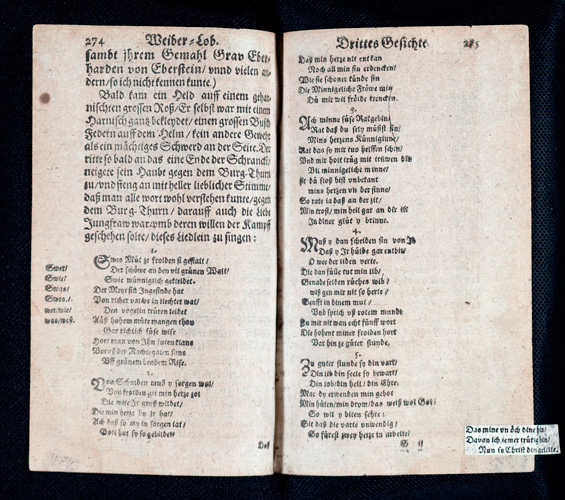 274 Weiber-Lob.
sambt jhrem Gemahl Grav Eber-
harden von Eberstein/ vnnd vielen an-
dern/ so ich nicht kennen kunte.
Bald kam ein Held auff einem gehar-
nischten grossen Roß/ Er selbst war mit einem
Harnisch gantz bekleydet/ einen grossen Busch
Federn auff dem Helm/ kein andere Gewehr
als ein mächtiges Schwerd an der Seite. Der
ritte so bald an das eine Ende der Schrancken/
neigete sein Haubt gegen dem Burg-Thurn
zu/ vnd fieng an mit heller lieblicher Stimme/
daß man alle wort wohl verstehen kunte/ gegen
dem Burg-Thurn/ darauff auch die Liebe
Jungfraw war/ vmb deren willen der Kampf
geschehen solte/ dieses Liedlein zu singen:
1.
Swes Müt ze froiden si gestalt/
Der schöwe an den vil grünen Walt/
Wie wünnigklich gekleidet.
Der Meye sin Ingesinde hat
Von richer vatwe in liechter wat/
Den vogelin trüren leidet
hohem müte mangen thon
Gar richlich süsse wise
Hort man von Ihn
der Nachtegalen sang
Vff grünem Rise.
2.
Von Schulden muß y sorgen wol/
Von froiden git min herze zol
Die wile
Die min herze hat/
Ach daß sy my in sorgen lat/
Dast hat sy so gebildet/
Swer/
Swie/
Swas/
Swes/.
wer/wie/
was/weß.
Daß
Drittes Gesichte 275
Daß min herze nit entkan
Noch all min sin erdencken/
Wie sie schoner künde sin
Die Minnigeliche Fröwe min
Dü mir wil fröide krencken.
3.
Ach minne süsse Ratgebin/
Rat daß du sely müssist sin/
Mins herzens Künniginne/
Rat das sy mir tuo helffen schin/
Vnd mit hoit trüg mit triuwen din
Vil minnigeliche minne/
sit dü sloß bist vnbekant
mins herzen vn der sinne/
So rate ia daß an der zit/
Min trost/ min heil gar an dir lit
In diner glüt y brinne.
4.
Muß y dan scheiden sin von Ir
Daß y Ir hulde gar enbir/
O wer der leiden verte.
Die dan fülle tut min lib/
Genade selden riches wib/
wiß gen mir nit so herte/
Senfft in dinem mut/
Vnd sprich vß rotem munde
Zu mir nit wan echt fünff wort
Die hohent miner froiden hort
Var hin ze güter stunde.
5.
Zu guter stunde sy din vart/
Din lib din seele sy bewart/
Din lob/ din heil/ din Ehre.
Mac dy erwenden min gebot
Min flüten/ min drow/ das weiß wol Got/
So wil y biten sehre:
Sit daß die varte vnwendig/
So fürest zwey hertze in arbeite/
S ij
Das mine vn dch dine hin/
Davon ich iemer trürig bin/
Nun sy Christ din geleite.